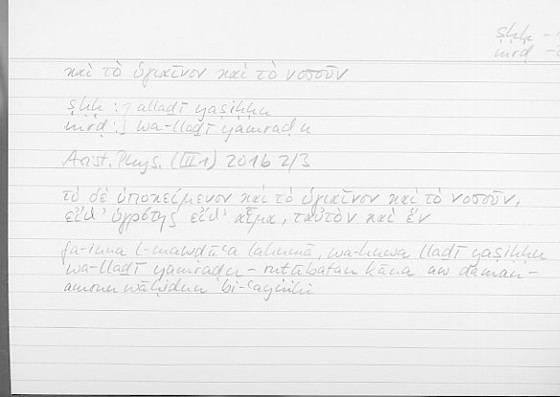 ṣḥḥ -
mrḍ -
καὶ τὸ ὑγιαῖνον καὶ τὸ νοσοῦν
ṣḥḥ : ] alladī yaṣiḥḥu
mrḍ : ] wa-lladī yamraḍu
Arist. Phys. (III 1) 201b 2/3
τὸ δὲ ὑποκείμενον καὶ τὸ ὑγιαῖνον καὶ τὸ νοσοῦν,
εἴθ' ὑγρότης εἴθ' αἷμα, ταὐτὸν καὶ ἕν
fa-inna l-mawḍūʿa lahumā, wa-huwa lladī yaṣiḥḥu
wa-lladī yamraḍu – ruṭūbatan kāna aw daman –
amrun wāḥidun bi-ʿaynihi